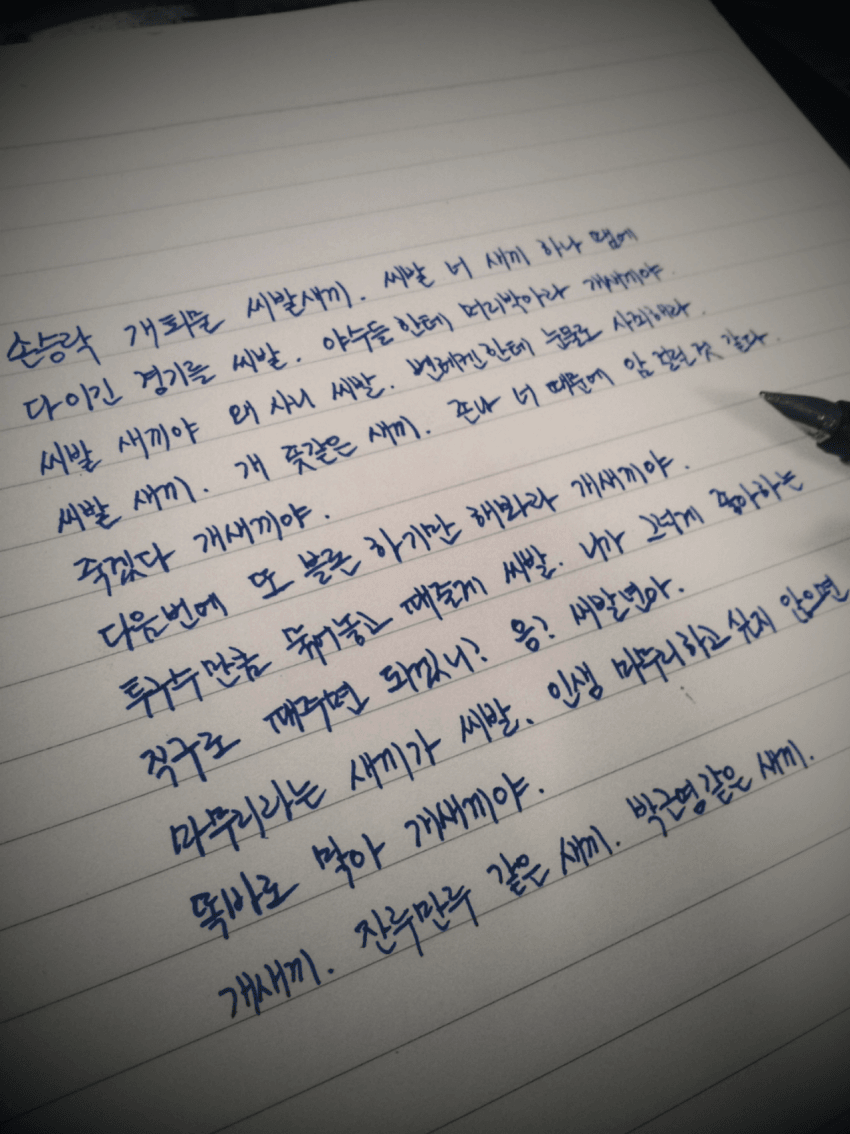 손승락 개퇴물 씨발새끼. 씨발 너 새끼 하나 땜에
다 이긴 경기를 씨발. 야수들한테 머리박아라 개새끼야.
씨발 새끼야 왜 사니 씨발. 번헤켄한테 눈물로 사죄해라.
씨발 새끼. 개 좆같은 새끼. 존나 너 때문에 암 걸린것 같다.
죽겠다 개새끼야.
다음번에 또 블론 하기만 해봐라 개새끼야.
투구수만큼 묶어놓고 때줄게 씨발. 니가 그렇게 좋아하는
직구로 때주면 되겠니? 응? 씨발년아.
마무리라는 새끼가 씨발. 인생 마무리하고 싶지 않으면
똑바로 막아 개새끼야.
개새끼. 잔루만루 같은 새끼. 박근영같은 새끼.